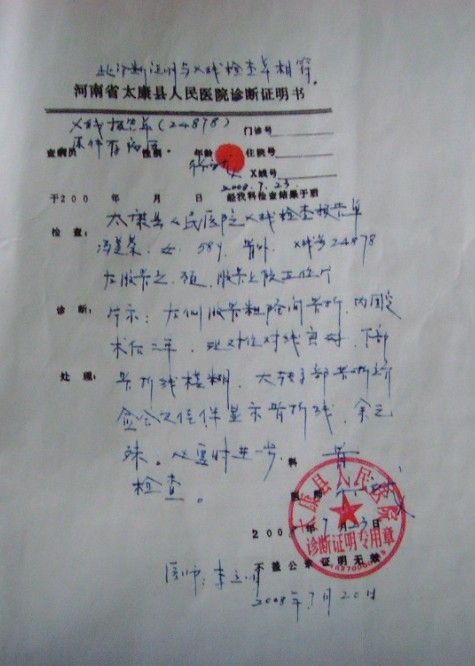 此诊断证明与X线检查单相符。
河南省太康县人民医院诊断证明书
X线报告单(24878) 门诊号
原件存病历
查病员 性别 年龄 住院号
X线号
2008.7.23
于200 年 月 日 经我科检查结果于后
太康县人民医院X线检查报告单
检查: 女. 58岁. 骨外. X线号24878
左股骨正位片
诊断: 片示: 左侧股骨粗隆间骨折, 内固定
术后二年, 对位对线良好, 下部
处理: 骨折线模糊. 大转子部骨折
愈合欠佳伴显示骨折线. 余无
殊。必要时进一步 科 骨
检查。
医师
太康县人民医院
诊断证明专用章
200 年7月23日
不盖公章证明无效
医师: 李
2008年7月20日